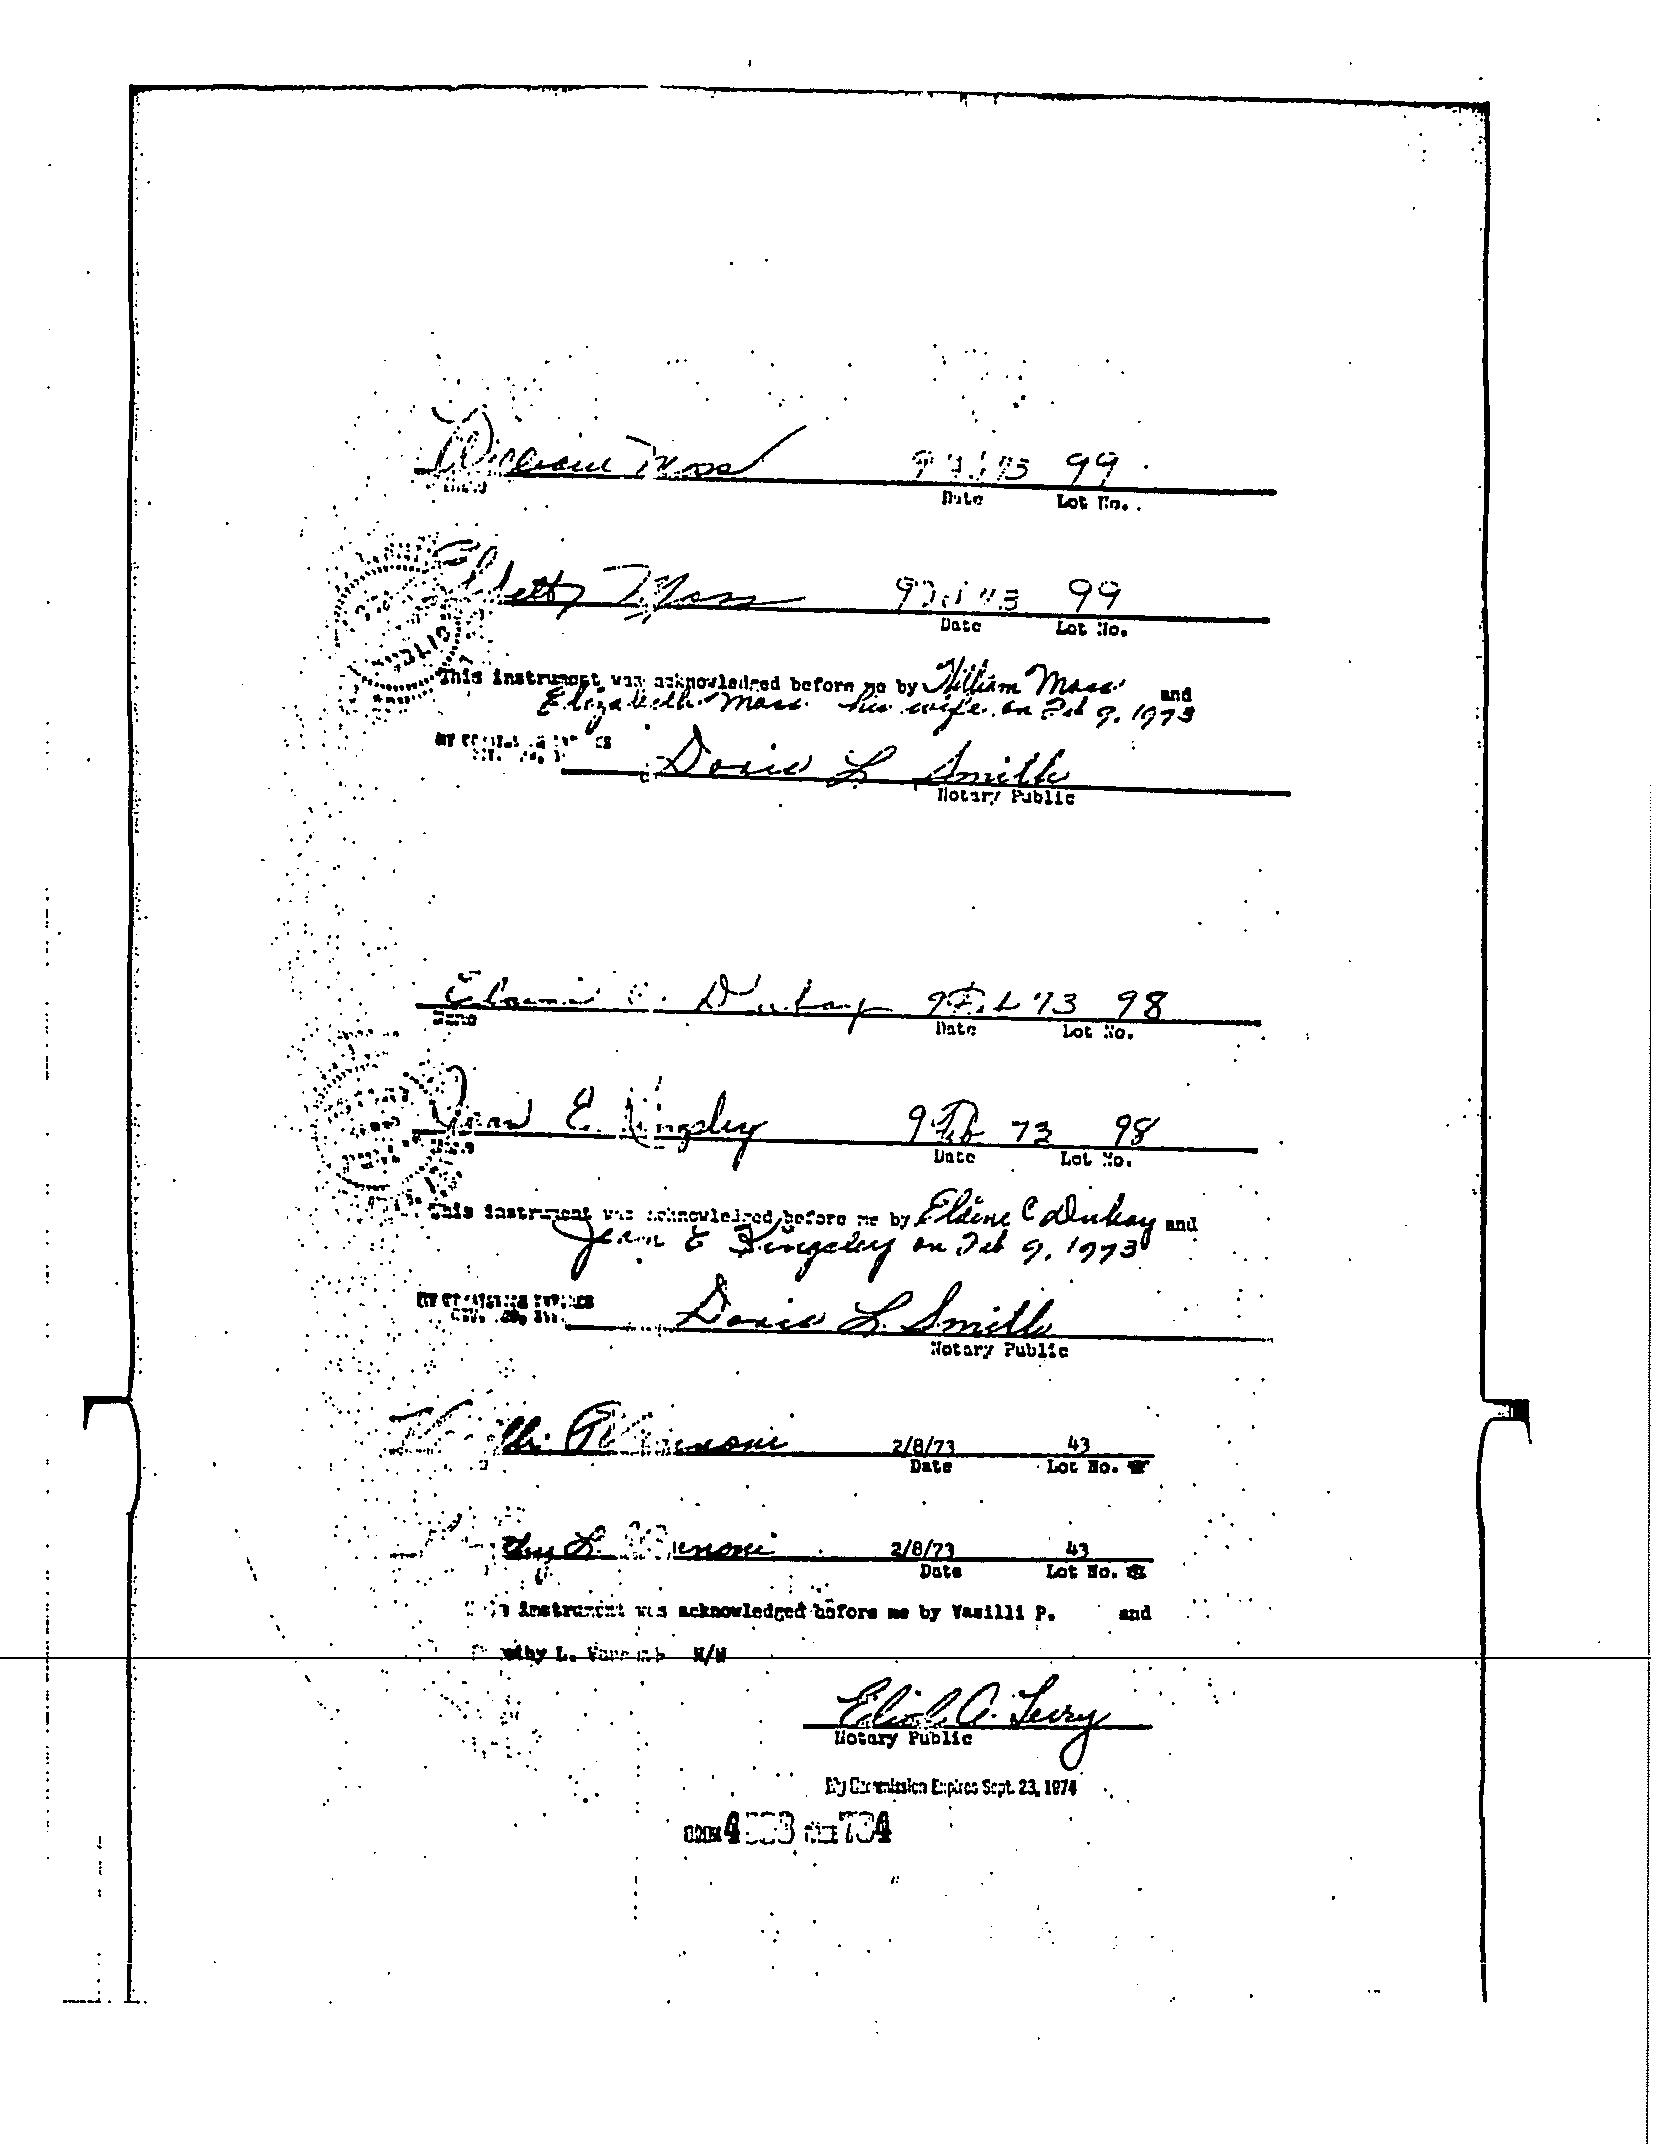 William Moss 99
Date Lot No.
Betty Moss 99
Date Lot No.
PUBLIC
This instrument was acknowledged before me by William Moss and
Elizabeth Moss his wife on Feb 9, 1973
Doris L Smith
Notary Public
Elaine C. Dubay 9 Feb 73 98
Name Date Lot No.
Jean E. Kingsley 9 Feb 73 98
Date Lot No.
This instrument was acknowledged before me by Elaine C Dubay and
Jean E Kingsley on Feb 9, 1973
MY COMMISSION EXPIRES
Doris L. Smith
Notary Public
2/8/73 43
Date Lot No.
2/8/73 43
Date Lot No.
instrument was acknowledged before me by Vasilli P. and
L. H/W
A. Terry
Notary Public
My Commission Expires Sept. 23, 1974